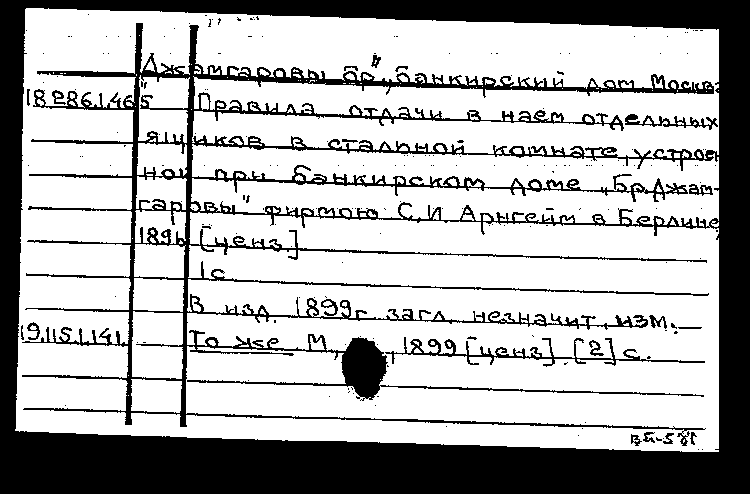 Джамгаровы бр", банкирский дом. Москва
18.286.1.465 Правила отдачи в наем отдельных
ящиков в стальной комнате, устроен
ной при банкирском доме „Бр. Джам-
гаровы" фирмою С.И. Арнгейм в Берлине,
1896 [ценз.]
1с
В изд. 1899г загл. незначит. изм.
19.115.1.141. То же М., 1899 [ценз]. [2] с.